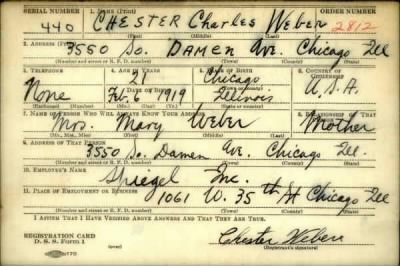 SERIAL NUMBER 1. NAME (Print) ORDER NUMBER
440 CHESTER Charles Weber 2812
2. ADDRESS (Print)
3550 So. DAMEN Ave. Chicago Ill
(Number and street or R. F. D. number) (Town) (County) (State)
3. TELEPHONE 4. AGE IN YEARS 5. PLACE OF BIRTH 6. COUNTRY OF CITIZENSHIP
21 Chicago
None DATE OF BIRTH Illinois U.S.A.
Feb. 6 1919
(Exchange) (Number) (Mo.) (Day) (Yr.) (State or country)
7. NAME OF PERSON WHO WILL ALWAYS KNOW YOUR ADDRESS 8. RELATIONSHIP OF THAT PERSON
Mrs. Mary Weber Mother
(Mr., Mrs., Miss) (First) (Middle) (Last)
9. ADDRESS OF THAT PERSON
3550 So. Damen Av. Chicago Ill.
(Number and street or R. F. D. number) (Town) (County) (State)
10. EMPLOYER'S NAME
Spiegel Inc.
11. PLACE OF EMPLOYMENT OR BUSINESS
1061 W. 35th St Chicago Ill
(Number and street or R. F. D. number) (Town) (County) (State)
I AFFIRM THAT I HAVE VERIFIED ABOVE ANSWERS AND THAT THEY ARE TRUE.
REGISTRATION CARD
D. S. S. Form 1 Chester Weber
(Registrant's signature)